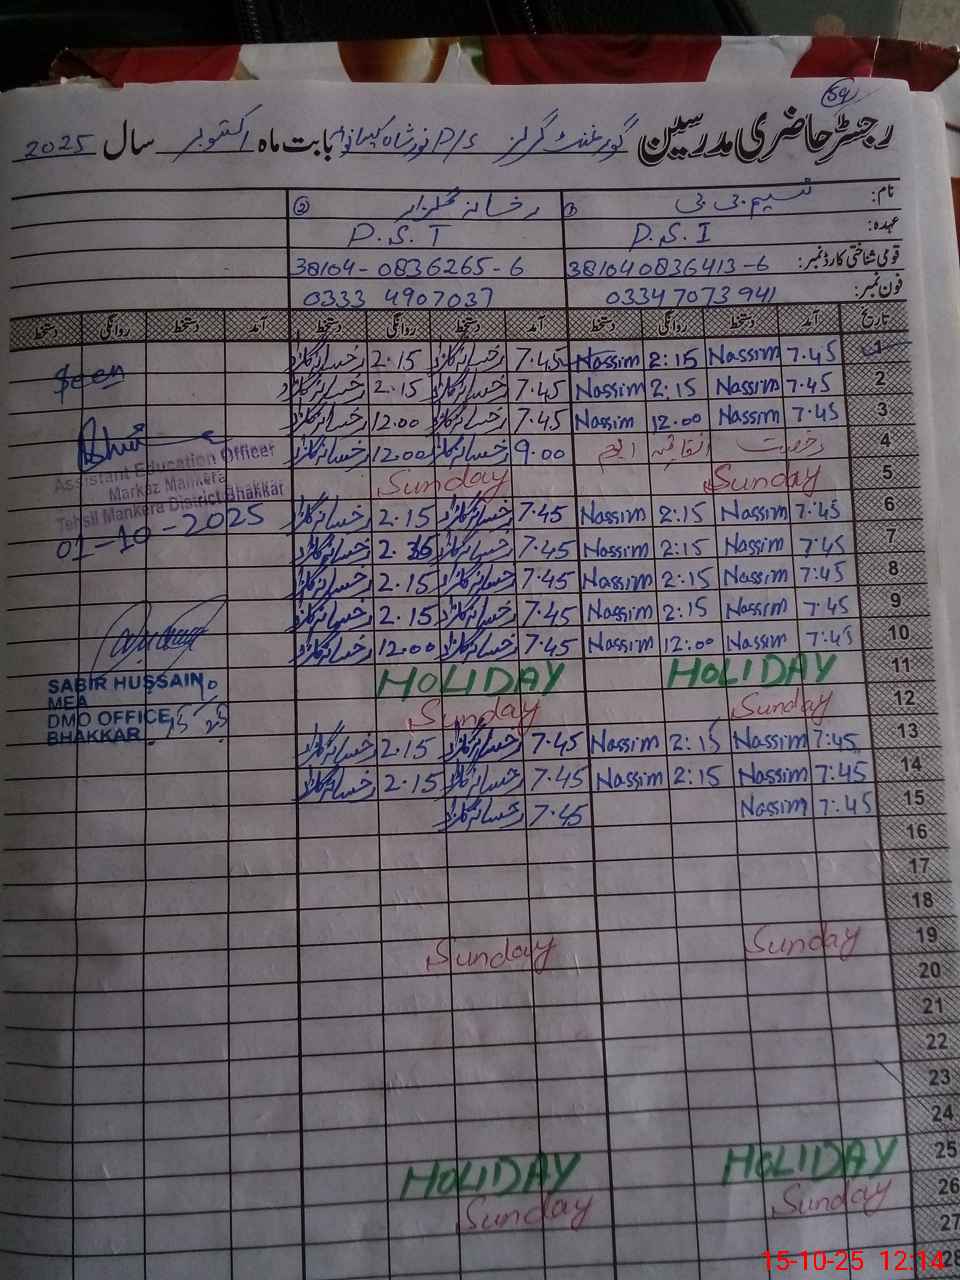 59
رجسٹر حاضری مدرسین گورنمنٹ گرلز P/S نور شاہ بابت ماہ اکتوبر سال 2025
نام: نسیم بی بی ① رخسانہ گلزار ②
عہدہ: P.S.T P.S.T
قومی شناختی کارڈ نمبر: 38104 0836413-6 38104-0836265-6
فون نمبر: 0334 7073941 0333 4907037
تاریخ آمد دستخط روانگی دستخط آمد دستخط روانگی دستخط آمد دستخط روانگی دستخط
1 7.45 Nassim 2:15 Nassim 7.45 رخسانہ گلزار 2.15 رخسانہ گلزار
Seen
2 7.45 Nassim 2:15 Nassim 7.45 رخسانہ گلزار 2.15 رخسانہ گلزار
3 7.45 Nassim 12.00 Nassim 7.45 رخسانہ گلزار 12.00 رخسانہ گلزار
4 رخصت اتفاقیہ 9.00 رخسانہ گلزار 12.00 رخسانہ گلزار
Assistant Education Officer
Markaz Mankera
Tehsil Mankera District Bhakkar
01-10-2025
5 Sunday Sunday
6 7:45 Nassim 2:15 Nassim 7.45 رخسانہ گلزار 2.15 رخسانہ گلزار
7 7:45 Nassim 2:15 Nassim 7.45 رخسانہ گلزار 2. رخسانہ گلزار
8 7:45 Nassim 2:15 Nassim 7.45 رخسانہ گلزار 2.15 رخسانہ گلزار
9 7.45 Nassim 2:15 Nassim 7.45 رخسانہ گلزار 2.15 رخسانہ گلزار
10 7:45 Nassim 12:00 Nassim 7.45 رخسانہ گلزار 12.00 رخسانہ گلزار
11 HOLIDAY HOLIDAY
SABIR HUSSAIN
MEA
DMO OFFICE
BHAKKAR
12 Sunday Sunday
13 7:45 Nassim 2:15 Nassim 7.45 رخسانہ گلزار 2.15 رخسانہ گلزار
14 7:45 Nassim 2:15 Nassim 7.45 رخسانہ گلزار 2.15 رخسانہ گلزار
15 7:45 Nassim 7.45 رخسانہ گلزار
16
17
18
19 Sunday Sunday
20
21
22
23
24
25 HOLIDAY HOLIDAY
26 Sunday Sunday
27
28
15-10-25 12:14